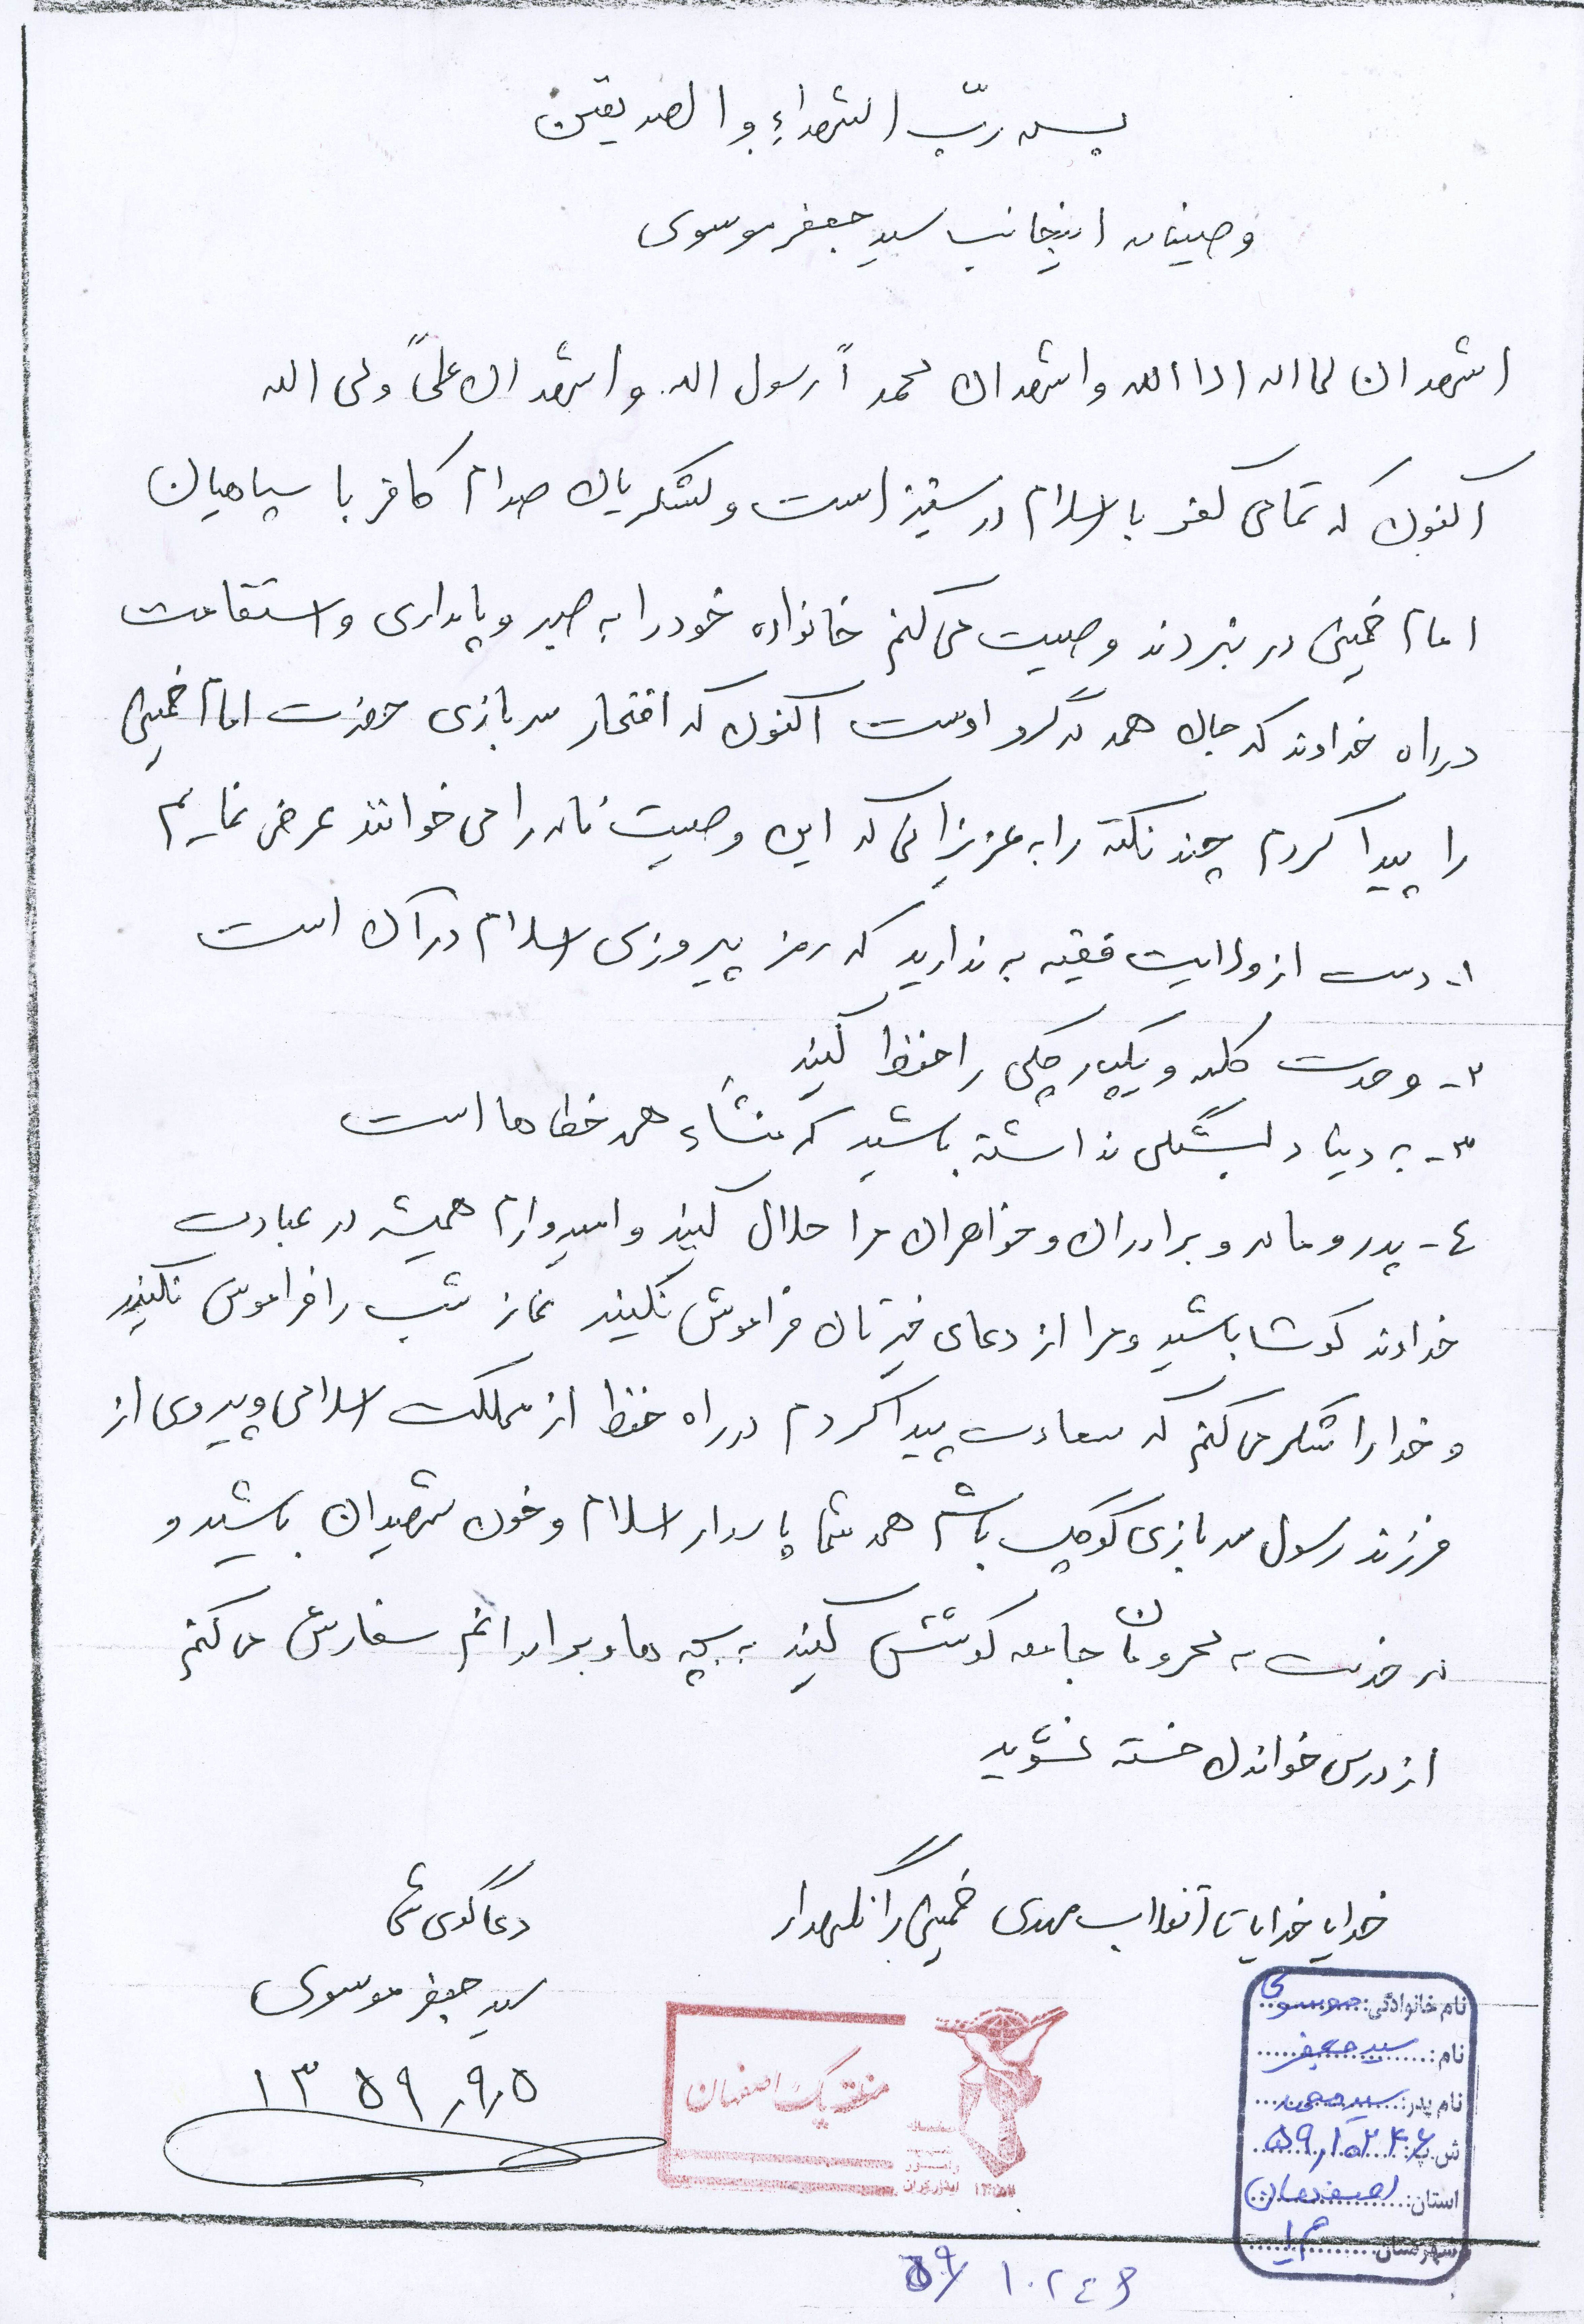 بسمه ربّ الشهداءِ و الصدیقین
وصیتنامه اینجانب سید جعفر موسوی
اشهد ان لااله الا الله و اشهد ان محمداً رسول الله و اشهد ان علیً ولی الله
اکنون که تمامی کفر با اسلام در ستیز است و لشکریان صدام کافر با سپاهیان
امام خمینی در نبردند وصیت می کنم خانواده خود را به صبر و پایداری و استقامت
در راه خداوند که جان همه در گرو اوست اکنون که افتخار سربازی حضرت امام خمینی
را پیدا کردم چند نکته را به عزیزانی که این وصیت نامه را می خوانند عرض نمایم
۱- دست از ولایت فقیه به ندارید که رمز پیروزی اسلام در آن است
۲- وحدت کلمه و یکپارچگی را حفظ کنید
۳- به دنیا دلبستگی نداشته باشید که منشاء همه خطاها است
٤- پدر و مادر و برادران و خواهران مرا حلال کنید و امیدوارم همیشه در عبادت
خداوند کوشا باشید و مرا از دعای خیرتان فراموش نکنید نماز شب را فراموش نکنید
و خدا را شکر می کنم که سعادت پیدا کردم در راه حفظ از مملکت اسلامی و پیروی از
فرزند رسول سربازی کوچک باشم همه شما پاسدار اسلام و خون شهیدان باشید و
در خدمت به محرومان جامعه کوشش کنید به بچه ها و برادرانم سفارش می کنم
از درس خواندن خسته نشوید
خدایا خدایا تا انقلاب مهدی خمینی را نگهدار
دعاگوی شما
سید جعفر موسوی
۱۳۵۹٫۹٫۵
منطقه یک اصفهان
نام خانوادگی: موسوی
نام: سید جعفر
نام پدر: سید
ش.پ: ۵۹٫۱۰۲۴۶
استان: اصفهان
شهرستان:
۵۹/۱۰۲٤۶